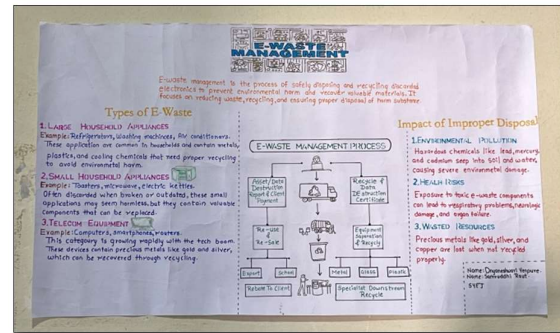 E-WASTE
MANAGEMENT
E-waste management is the process of safely disposing and recycling discarded
electronics to prevent environmental harm and recover valuable materials. It
focuses on reducing waste, recycling, and ensuring proper disposal of harm substance
Types of E-Waste
1. LARGE HOUSEHOLD APPLIANCES
Example: Refrigerators, Washing machines, Air conditioners.
These application are common in households and contain metals,
plastics, and cooling chemicals that need proper recycling
to avoid environmental harm.
2. SMALL HOUSEHOLD APPLIANCES
Example: Toasters, microwave, electric kettles.
Often discarded when broken or outdated, these small
applications may seem harmless, but they contain valuable
components that can be replaced.
3. TELECOM EQUIPMENT
Example: Computers, smartphones, routers.
This category is growing rapidly with the tech boom.
These devices contain precious metals like gold and silver,
which can be recovered through recycling.
E-WASTE MANAGEMENT PROCESS
Asset/Data
Destruction
Report & Client
Payment
Recycle &
Data
Destruction
Certificate
Re-use
&
Re-Sale
Equipment
Separation
& Recycle
Export
School
Metal
Glass
Plastic
Rebate To Client
Specialist Downstream
Recycle
Impact of Improper Disposal
1. ENVIRONMENTAL POLLUTION
Hazardous chemicals like lead, mercury,
and cadmium seep into soil and water,
causing severe environmental damage.
2. HEALTH RISKS
Exposure to toxic e-waste components
can lead to respiratory problems, neurologic
damage, and organ failure.
3. WASTED RESOURCES
Precious metals like gold, silver, and
copper are lost when not recycled
properly.
Name:
Name:
SYIT